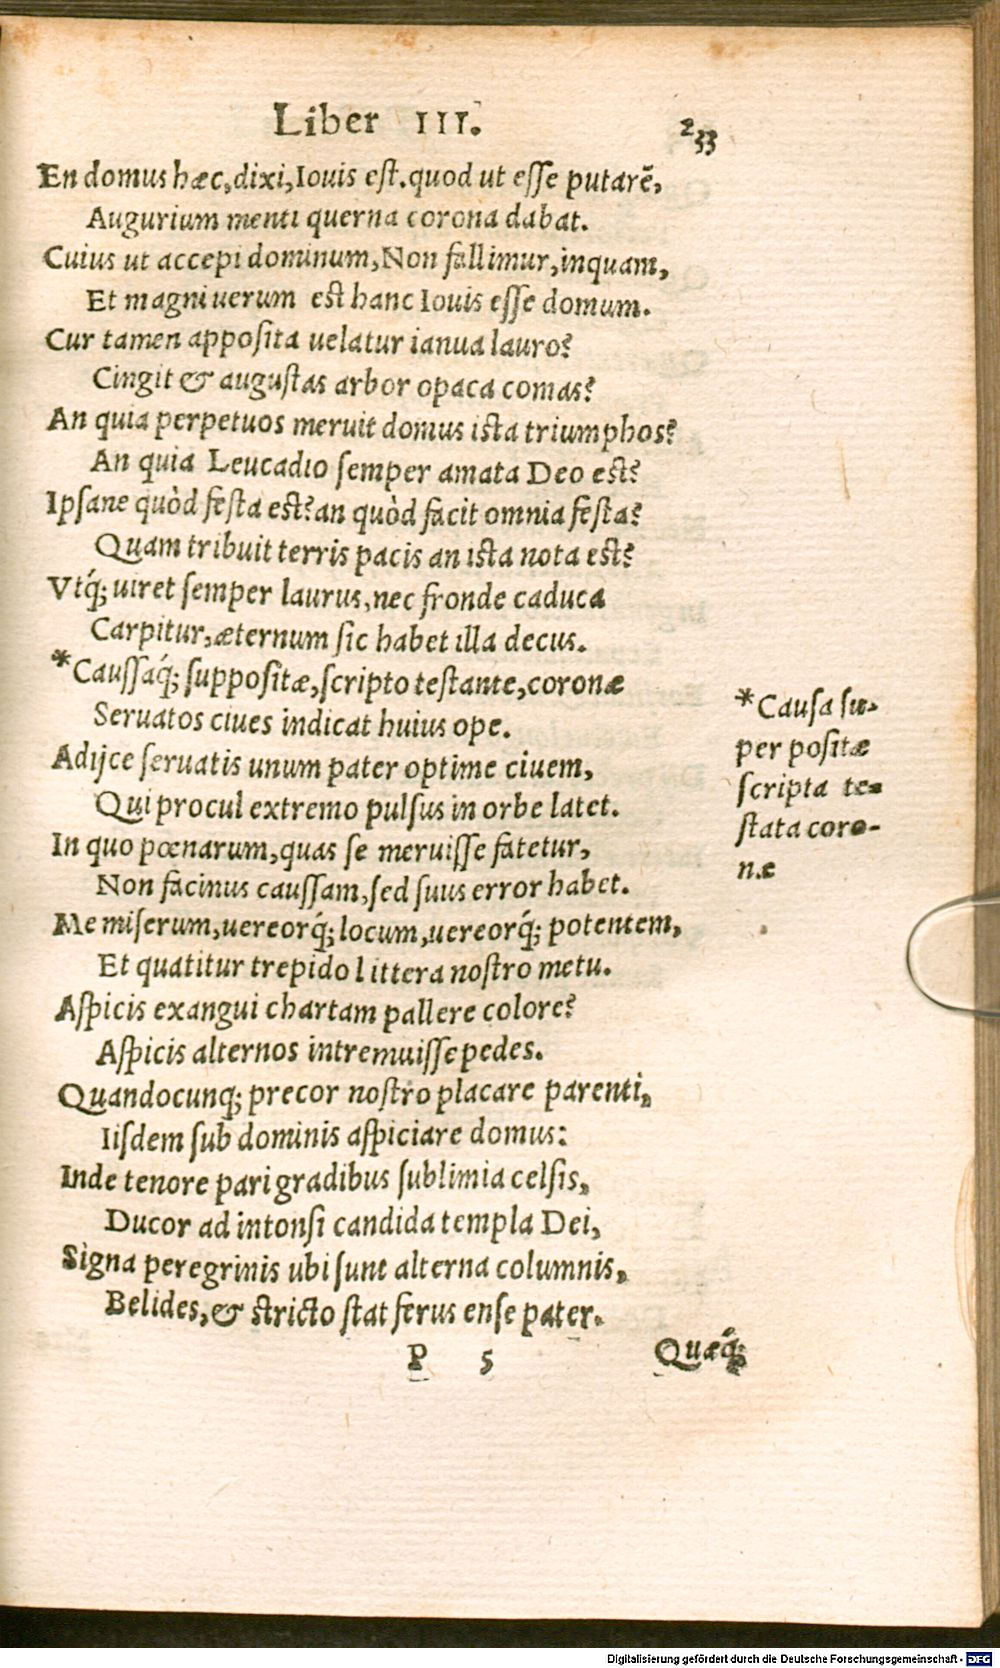 Liber III. 233
En domus hæc, dixi, Iouis est. quod ut esse putarẽ,
Augurium menti querna corona dabat.
Cuius ut accepi dominum, Non fallimur, inquam,
Et magni uerum est hanc Iouis esse domum.
Cur tamen apposita uelatur ianua lauro?
Cingit & augustas arbor opaca comas?
An quia perpetuos meruit domus ista triumphos?
An quia Leucadio semper amata Deo est?
Ipsane quòd festa est? an quòd facit omnia festa?
Quam tribuit terris pacis an ista nota est?
Vtq́; uiret semper laurus, nec fronde caduca
Carpitur, æternum sic habet illa decus.
*Caussaq́; suppositæ, scripto testante, coronæ
Seruatos ciues indicat huius ope.
Adijce seruatis unum pater optime ciuem,
Qui procul extremo pulsus in orbe latet.
In quo pœnarum, quas se meruisse fatetur,
Non facinus caussam, sed suus error habet.
Me miserum, uereorq́; locum, uereorq́; potentem,
Et quatitur trepido littera nostro metu.
Aspicis exangui chartam pallere colore?
Aspicis alternos intremuisse pedes.
Quandocunq; precor nostro placare parenti,
Iisdem sub dominis aspiciare domus:
Inde tenore pari gradibus sublimia celsis,
Ducor ad intonsi candida templa Dei,
Signa peregrinis ubi sunt alterna columnis,
Belides, & stricto stat ferus ense pater.
P 5 Quæq́;
*Causa su-
per positæ
scripta te-
stata coro-
næ
Digitalisierung gefördert durch die Deutsche Forschungsgemeinschaft - DFG